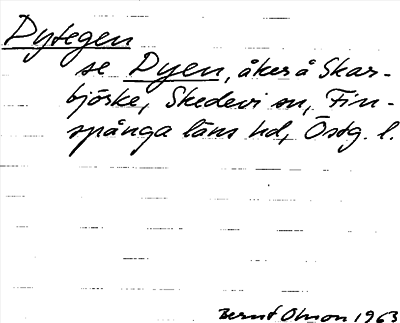 Dytegen
se Dyen, åker å Skar-
björke, Skedevi sn, Fin-
spånga läns hd, Östg. l.
Bernt Olson 1963